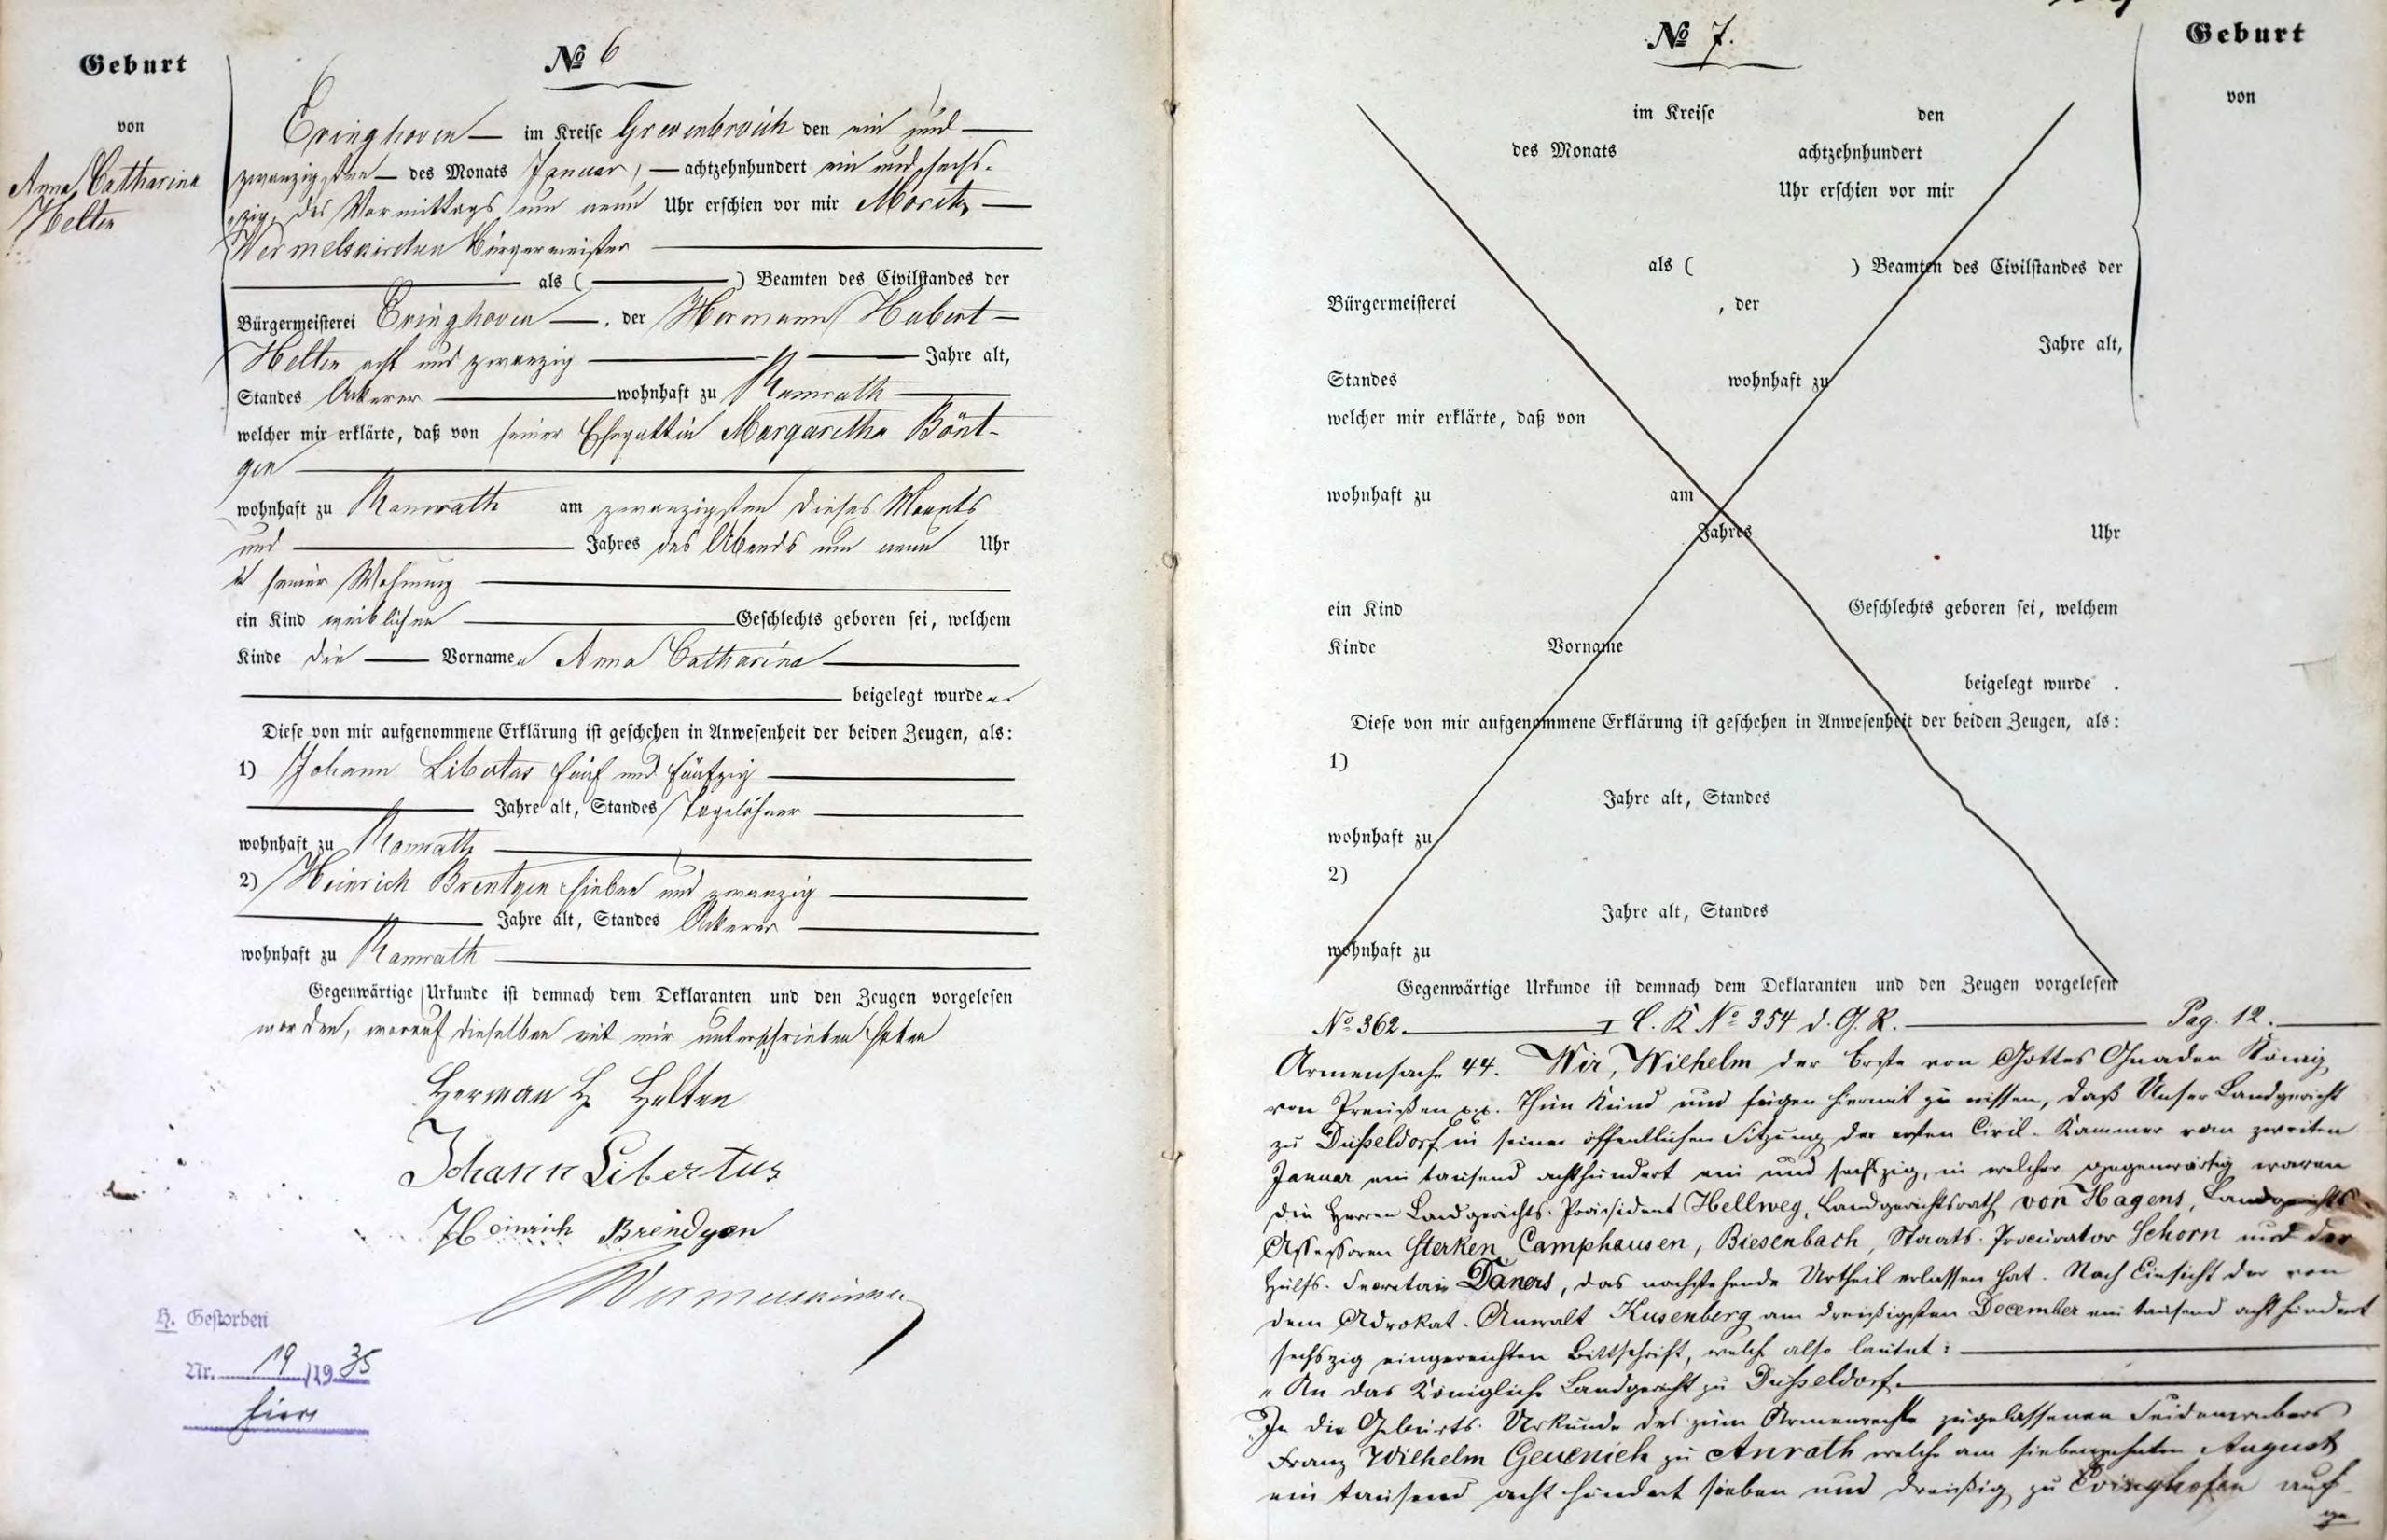 Geburt
№ 6
von
Anna Catharina
Helten
Evinghoven im Kreise Grevenbroich den ein und
zwanzigsten des Monats Januar, achtzehnhundert ein und sechs-
zig, des Vormittags um neun Uhr erschien vor mir Moritz
Wermelskirchen Bürgermeister
als ( ) Beamten des Civilstandes der
Bürgermeisterei Evinghoven, der Hermann Hubert
Helten acht und zwanzig Jahre alt,
Standes Ackerer wohnhaft zu Ramrath
welcher mir erklärte, daß von seiner Ehegattin Margaretha Bönt-
gen
wohnhaft zu Ramrath am zwanzigsten dieses Monats
und Jahres des Abends um neun Uhr
in seiner Wohnung
ein Kind weiblichen Geschlechts geboren sei, welchem
Kinde die Vornamen Anna Catharina
beigelegt wurden.
Diese von mir aufgenommene Erklärung ist geschehen in Anwesenheit der beiden Zeugen, als:
1) Johann Libertus fünf und fünfzig
Jahre alt, Standes Tagelöhner
wohnhaft zu Ramrath
2) Heinrich Brentgen sieben und zwanzig
Jahre alt, Standes Ackerer
wohnhaft zu Ramrath
Gegenwärtige Urkunde ist demnach dem Deklaranten und den Zeugen vorgelesen
worden, worauf dieselben mit mir unterschrieben haben
Herman H Helten
Johann Libertus
Heinrich Brendgen
Wermelskirchen
H. Gestorben
Nr. 19/1935
hier
№ 7.
Geburt
von
im Kreise den
des Monats achtzehnhundert
Uhr erschien vor mir
als ( ) Beamten des Civilstandes der
Bürgermeisterei , der
Jahre alt,
Standes wohnhaft zu
welcher mir erklärte, daß von
wohnhaft zu am
Jahres Uhr
ein Kind Geschlechts geboren sei, welchem
Kinde Vorname
beigelegt wurde .
Diese von mir aufgenommene Erklärung ist geschehen in Anwesenheit der beiden Zeugen, als:
1)
Jahre alt, Standes
wohnhaft zu
2)
Jahre alt, Standes
wohnhaft zu
Gegenwärtige Urkunde ist demnach dem Deklaranten und den Zeugen vorgelesen
No 362. I C. K No 354 d. G. R. Pag. 12.
Armensache 44. Wir, Wilhelm der Erste von Gottes Gnaden König
von Preußen xx. Thun Kund und fügen hiermit zu wissen, daß Unser Landgericht
zu Düsseldorf in seiner öffentlichen Sitzung der ersten Civil-Kammer vom zweiten
Januar ein tausend achthundert ein und sechszig, in welcher gegenwärtig waren
die Herren Landgerichts-Präsident Hellweg, Landgerichtsrath von Hagens, Landgerichts-
Assessoren Sterken, Camphausen, Biesenbach, Staats-Procurator Schorn und der
Hülfs-Secretair Daners, das nachstehende Urtheil erlassen hat. Nach Einsicht der von
dem Advokat-Anwalt Kusenberg am dreißigsten December ein tausend acht hundert
sechszig eingereichten Bittschrift, welche also lautet:
"An das Königliche Landgericht zu Düsseldorf.
"In die Geburts-Urkunde des zum Armenrechte zugelassenen Seidenwebers
Franz Wilhelm Geuenich zu Anrath welche am siebenzehnten August
ein tausend acht hundert sieben und dreißig zu Evinghofen auf-
ge